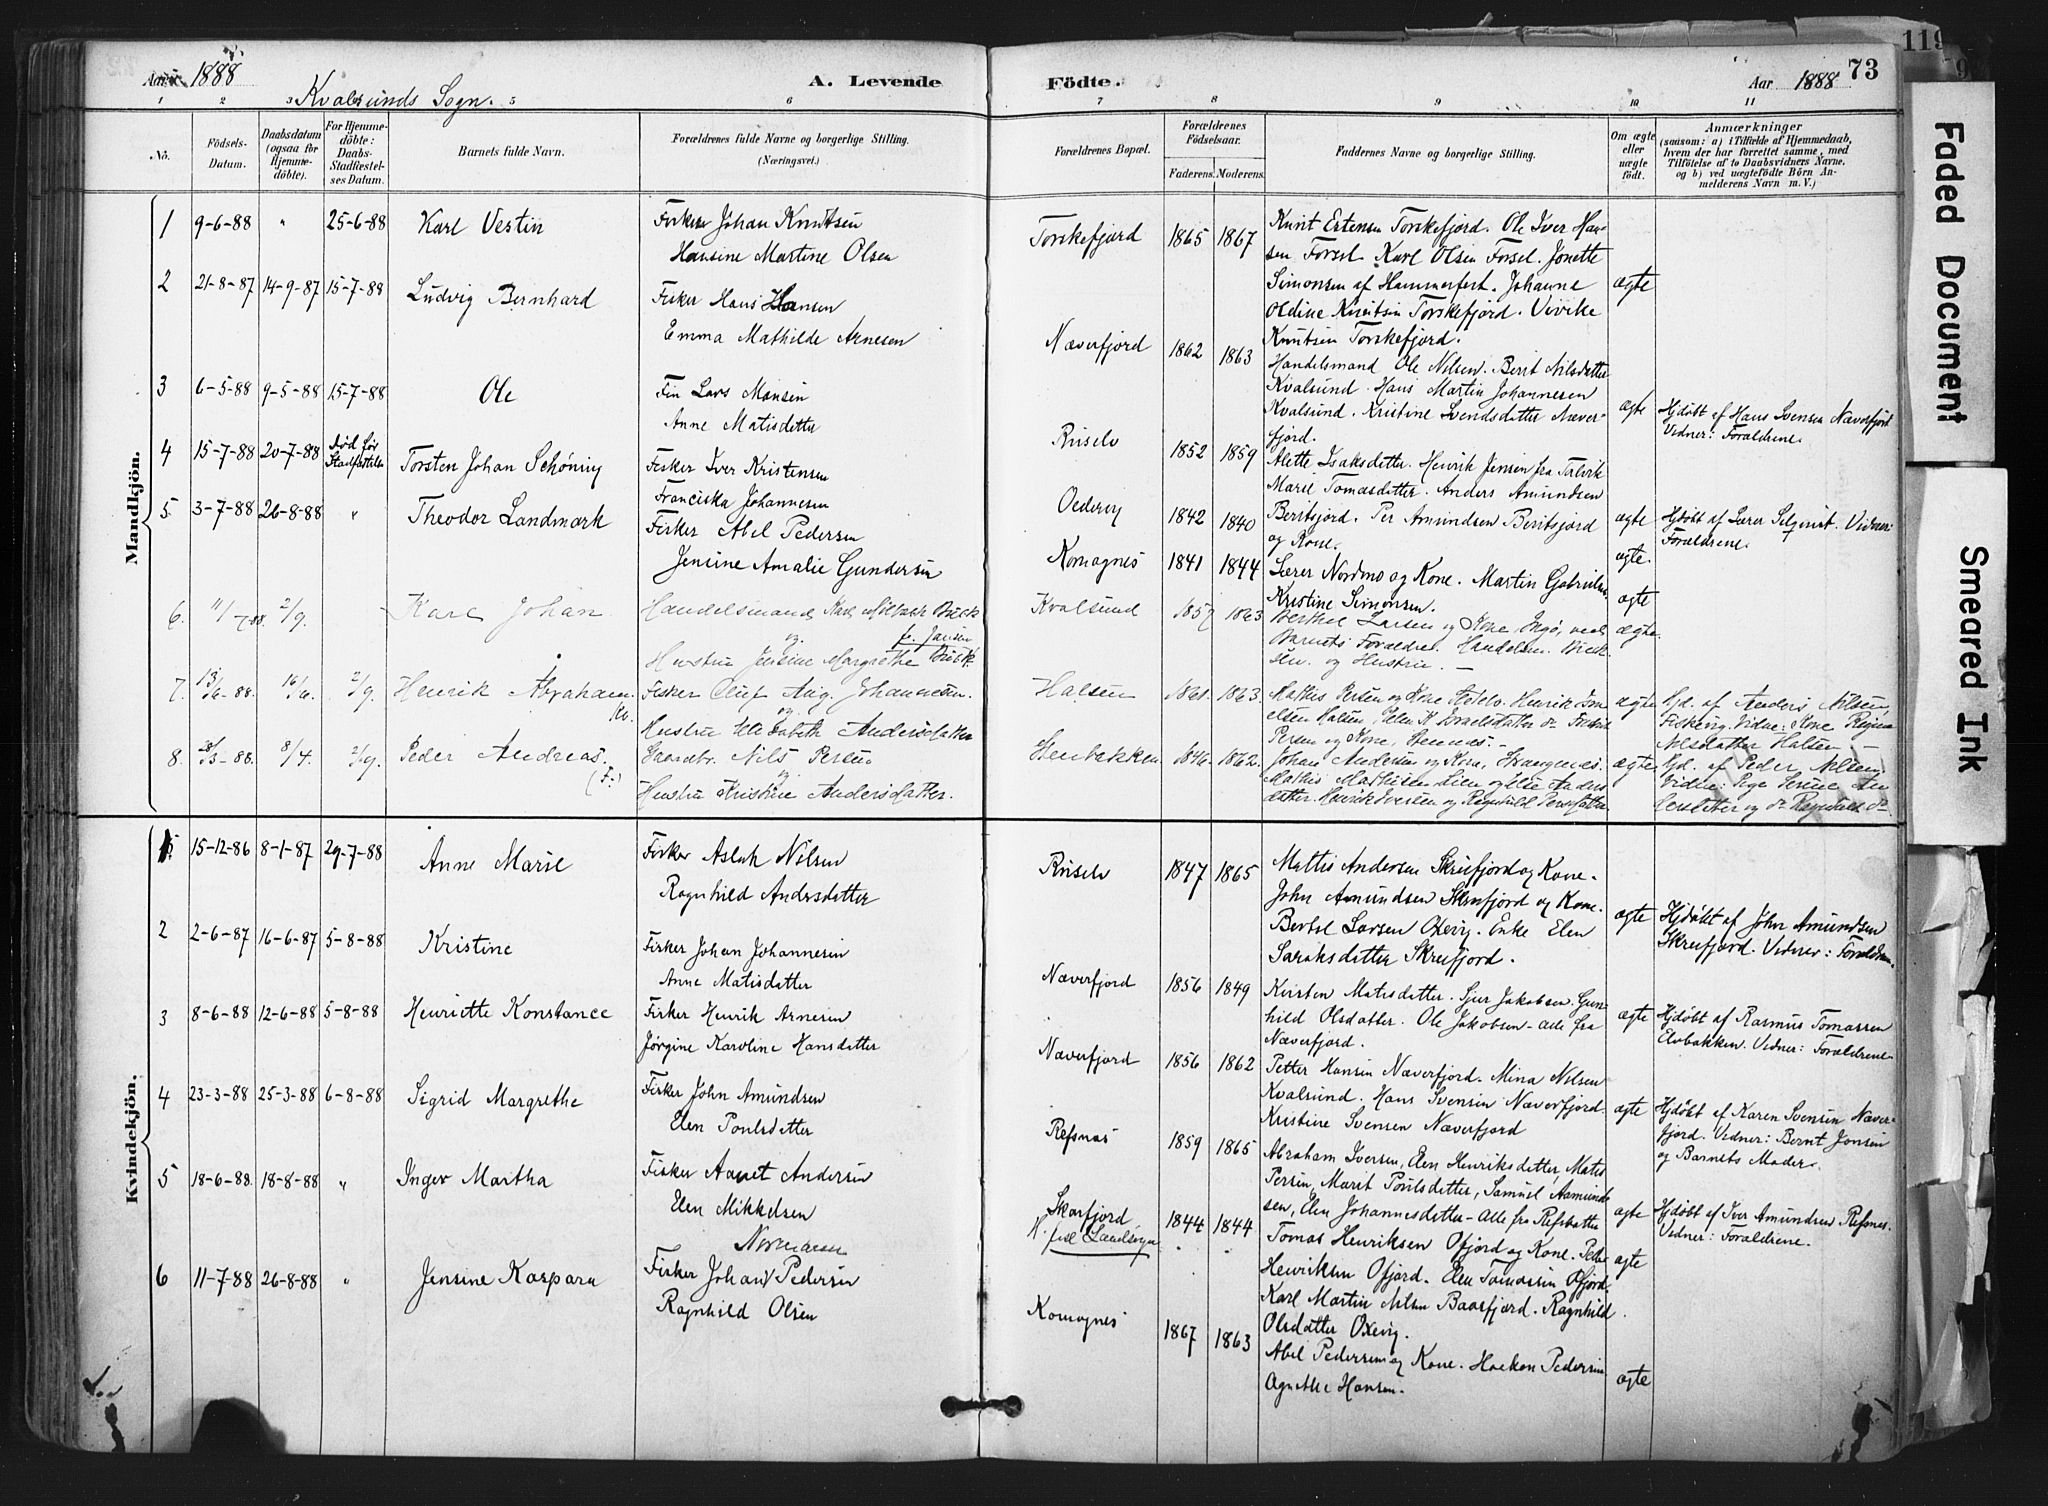 Aar 1888
Kvalsunds Sogn.
A. Levende
Födte.
Aar 1888
73
119
1 2 3 5 6 7 8 9 10 11
No.
Födsels-Datum.
Daabsdatum (ogsaa for Hjemme-döbte).
For Hjemme-döbte: Daabs-Stadfæstel-ses Datum.
Barnets fulde Navn.
Forældrenes fulde Navne og borgerlige Stilling.
(Næringsvei.)
Forældrenes Bopæl.
Forældrenes Födselsaar.
Faderens. Moderens.
Faddernes Navne og borgerlige Stilling.
Om ægte eller uægte födt.
Anmærkninger
(saasom: a) i Tilfælde af Hjemmedaab, hvem der har forrettet samme, med Tilföielse af to Daabsvidners Navne, og b) ved uægtefödte Börn An-melderens Navn m. V.)
Mandkjön.
1 9-6-88 " 25-6-88 Karl Vestin
Fisker Johan Knutsen
Hansine Martine Olsen
Torskefjord 1865 1867
Knut Ertensen Torskefjord. Ole Iver Han-
sen Forsel. Karl Olsen Forsel. Jonette
Simonsen af Hammerfest. Johanne
Oldine Knutsen Torskefjord. Vivike
Knutsen Torskefjord.
ægte
2 21-8-87 14-9-87 15-7-88 Ludvig Bernhard
Fisker Hans Hansen
Emma Mathilde Arnesen
Næverfjord 1862 1863
Handelsmand Ole Nilsen. Berit Nilsdatter
Kvalsund. Hans Martin Johannesen
Kvalsund. Kristine Svendsdatter Næver-
fjord.
ægte
Hjdøbt af Hans Svensen Næverfjord
Vidner: Forældrene.
3 6-5-88 9-5-88 15-7-88 Ole
Fin Lars Monsen
Anne Matisdatter
Riselv 1852 1859
Alette Isaksdatter. Henrik Jensen fra Talvik
Marie Tomasdatter. Anders Amundsen
Beritsjord. Per Amundsen Beritsjord
og Kone.
ægte
Hjdøbt af Lærer Selqvist. Vidner:
Forældrene.
4 15-7-88 20-7-88 Død før Stadfæstelse
Torsten Johan Schöning
Fisker Iver Kristensen
Franciska Johannesen
Oedevig 1842 1840
ægte
5 3-7-88 26-8-88 " Theodor Landmark
Fisker Abel Pedersen
Jensine Amalie Gundersen
Komagnes 1841 1844
Lærer Nordmo og Kone. Martin Gabriels.
Kristine Simonsen.
ægte
6. 11/7-88. 2/9. Karl Johan
Handelsmand Karl Buck
og f. Jansen
Hustru Jensine Margrethe Buck.
Kvalsund 1857 1863
Berthel Larsen og Kone Ingö, ved
Barnets Forældre. Handelsm. Buck
og Hustru. —
ægte.
7. 13/6-88. 16/6. 2/9. Henrik Abraham.
Fisker Oluf Aug. Johannesen.
og
Hustru Elisabeth Andersdatter
Halsen 1861. 1863.
Mathis Persen og Kone
Persen og Kone,
ægte
Hjd. af Anders Nilsen,
Vidne: Kone
Nilsdatter Halsen. —
8. 28/3-88. 8/4. 2/9. Peder Andreas. (F.)
Gaardbr. Nils Persen
og
Hustru Kristine Andersdatter.
Stenbakken 1846. 1862.
Johan Andersen og Kone,
Mathis Mathisen
datter. Henrik Iversen og Ragnhild Persdatter
ægte
Hjd. af Peder Nilsen
Kvindekjön.
1. 15-12-86 8-1-87 29-7-88 Anne Marie
Fisker Aslak Nilsen
Ragnhild Andersdatter
Riselv 1847 1865
Mattis Andersen Skreifjord og Kone.
John Amundsen Skreifjord og Kone.
Bertel Larsen Oxevig. Enke Elen
Saraksdatter Skreifjord.
ægte
Hjdøbt af John Amundsen
Skreifjord. Vidner: Forældrene.
2 2-6-87 16-6-87 5-8-88 Kristine
Fisker Johan Johannesen
Anne Matisdatter
Næverfjord 1856 1849
Kirsten Matisdatter. Sjur Jakobsen. Gun-
hild Olsdatter. Ole Jakobsen - Alle fra
Næverfjord.
ægte
Hjdøbt af Rasmus Tomassen
Elvbakken. Vidner: Forældrene
3 8-6-88 12-6-88 5-8-88 Henriette Konstance
Fisker Henrik Arnesen
Jørgine Karoline Hansdatter
Næverfjord 1856 1862
Petter Hansen Næverfjord. Mina Nilsen
Kvalsund. Hans Svensen Næverfjord
Kristine Svensen Næverfjord
ægte
Hjdøbt af Karen Svensen Næver-
fjord. Vidner: Bernt Jonsen
og Barnets Moder.
4 23-3-88 25-3-88 6-8-88 Sigrid Margrethe
Fisker John Amundsen
Elen Poulsdatter
Refsnæs 1859 1865
Abraham Iversen, Elen Henriksdatter, Matis
Persen, Maret Poulsdatter, Samuel Aamund-
sen, Elen Johannesdatter - Alle fra Refsbotten
ægte
Hjdøbt af Iver Amundsen Refsnes.
Vidner: Forældrene.
5 18-6-88 18-8-88 " Inger Martha
Fisker Aamet Andersen
Elen Mikkelsen
Skarfjord
H.fest Landsogn
1844 1844
Tomas Henriksen Ofjord og Kone. Peder
Henriksen Ofjord. Elen Tomassen Ofjord
Karl Martin Nilsen Baasfjord. Ragnhild
Olsdatter Oxevig.
ægte
6 11-7-88 26-8-88 " Jensine Kaspara
Normann
Fisker Johan Pedersen
Ragnhild Olsen
Komagnes 1867 1863
Abel Pedersen og Kone. Haakon Pedersen
Agnethe Hansen.
ægte
Faded Document
Smeared Ink